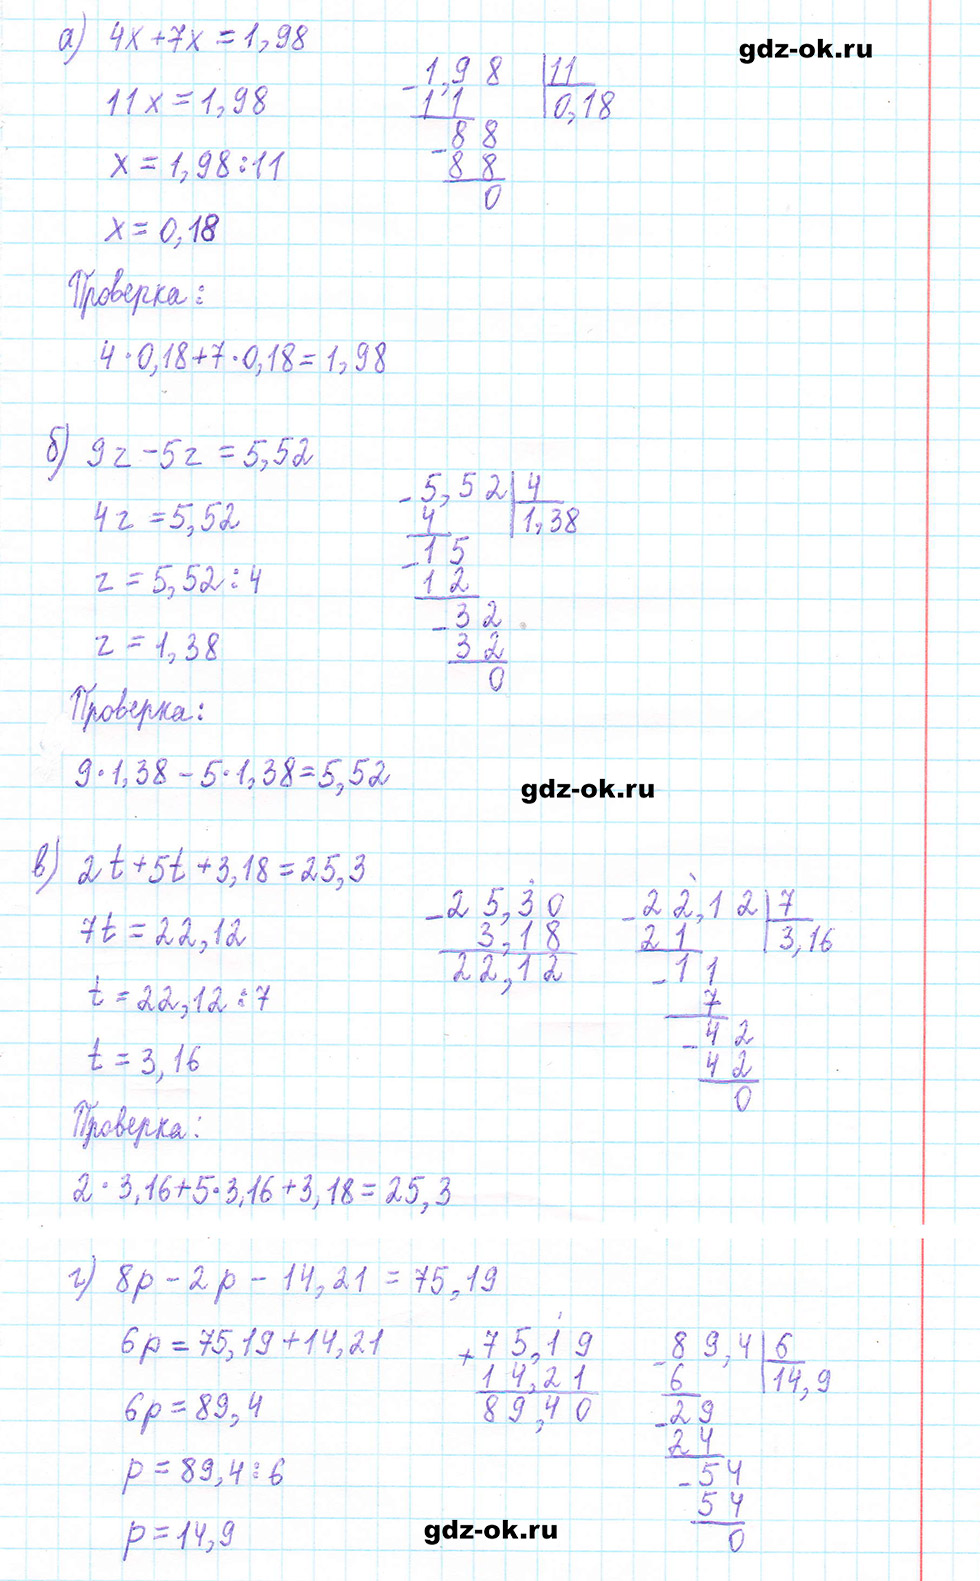 а) 4x+7x=1,98
gdz-ok.ru
11x=1,98
x=1,98:11
x=0,18
1,98 11
- 11 0,18
88
- 88
0
Проверка:
4·0,18+7·0,18=1,98
б) 9z-5z=5,52
4z=5,52
z=5,52:4
z=1,38
- 5,52 4
4 1,38
- 15
12
- 32
32
0
Проверка:
9·1,38-5·1,38=5,52
gdz-ok.ru
в) 2t+5t+3,18=25,3
7t=22,12
t=22,12:7
t=3,16
- 25,30
3,18
22,12
- 22,12 7
21 3,16
- 11
7
- 42
42
0
Проверка:
2·3,16+5·3,16+3,18=25,3
г) 8p-2p-14,21=75,19
6p=75,19+14,21
6p=89,4
p=89,4:6
p=14,9
+ 75,19
14,21
89,40
- 89,4 6
6 14,9
- 29
24
- 54
54
0
gdz-ok.ru